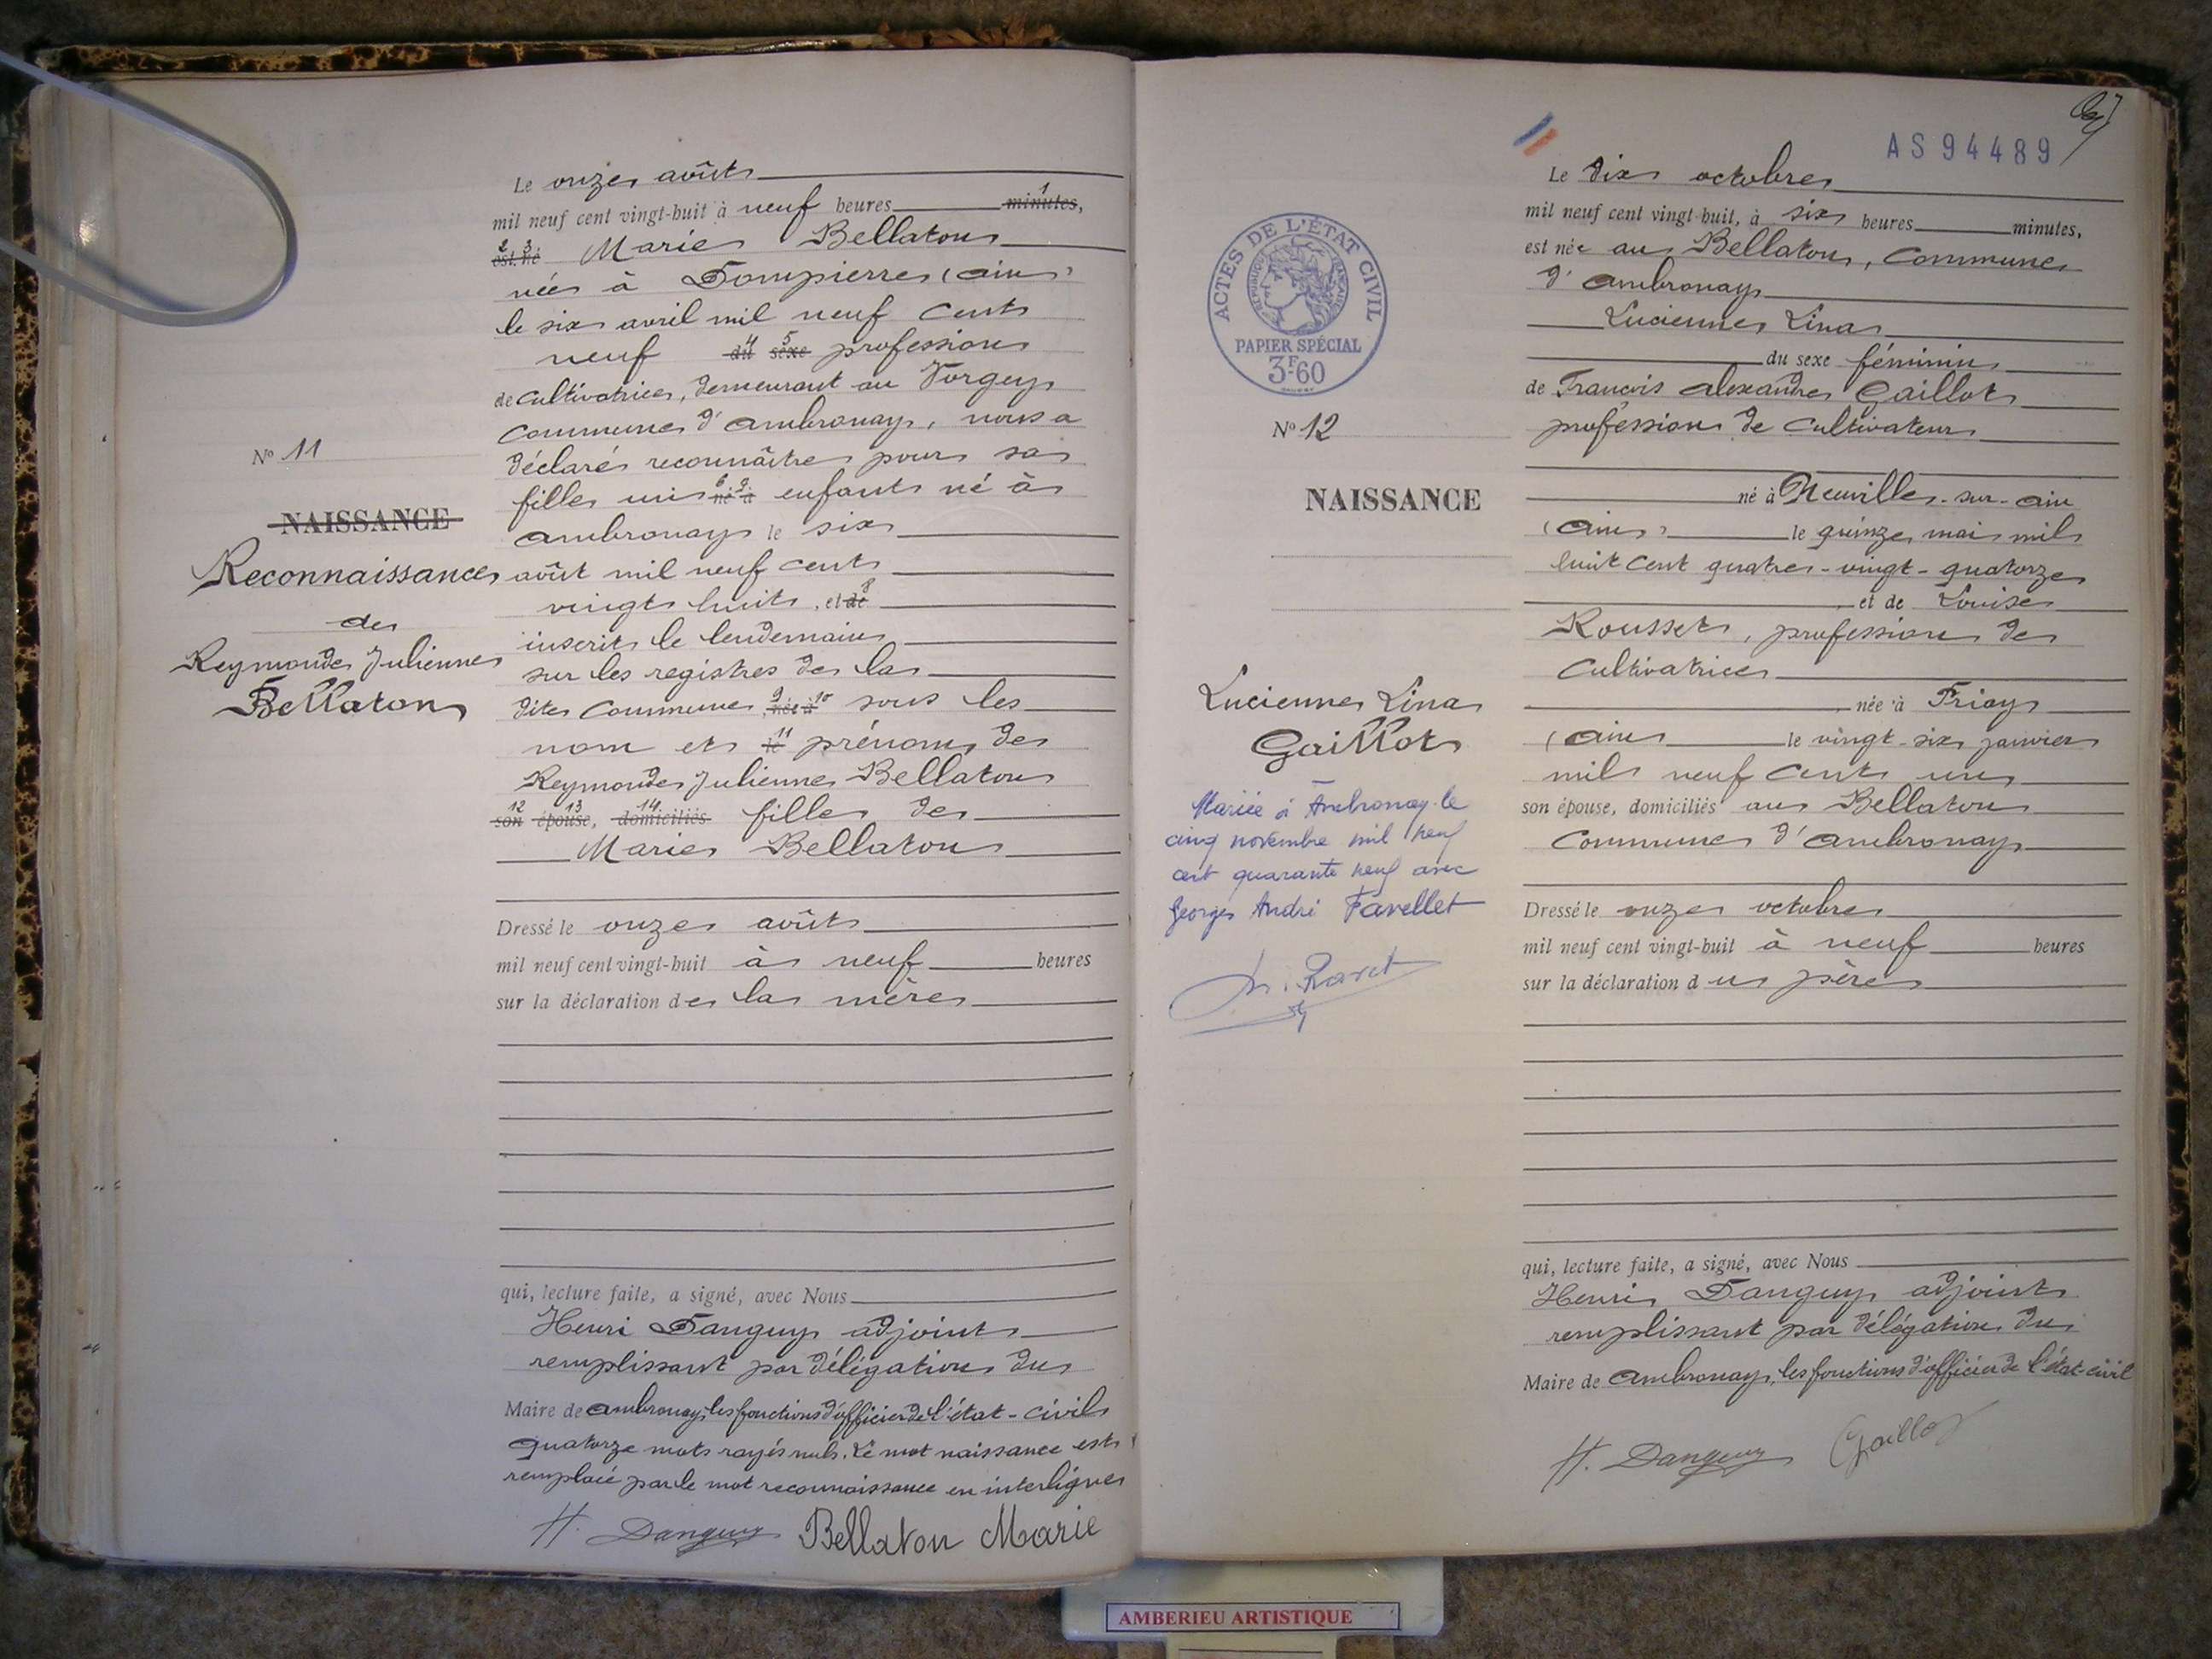 Le onze août
mil neuf cent vingt-huit à neuf heures minutes,
1
2 3
est né Marie Bellaton
née à Dompierre (Ain)
le six avril mil neuf cent
neuf du sexe profession
4 5
de cultivatrice, demeurant au Vorgey
commune d'Ambronay, nous a
déclaré reconnaître pour sa
fille un né à enfant né à
6 7
Ambronay le six
août mil neuf cent
vingt huit, et de
8
inscrit le lendemain
sur les registres de la
dite commune, née à sous les
9 10
nom et le prénoms de
11
Reymonde Julienne Bellaton
12 13 14
son épouse, domiciliés fille de
Marie Bellaton
Dressé le onze août
mil neuf cent vingt-huit à neuf heures
sur la déclaration de la mère
qui, lecture faite, a signé, avec Nous
Henri Danguy adjoint
remplissant par délégation du
Maire de Ambronay, les fonctions d'officier de l'état-civil
Quatorze mots rayés nuls. Le mot naissance est
remplacé par le mot reconnaissance en interligne
H. Danguy Bellaton Marie
No 11
NAISSANCE
Reconnaissance
de
Reymonde Julienne
Bellaton
AS 94489
ACTES DE L'ÉTAT CIVIL
PAPIER SPÉCIAL
3F60
No 12
NAISSANCE
Lucienne Lina
Gaillot
Mariée à Ambronay le
cinq novembre mil neuf
cent quarante neuf avec
Georges André Favellet
Le dix octobre
mil neuf cent vingt-huit, à six heures minutes,
est née au Bellaton, Commune
d'Ambronay
Lucienne Lina
du sexe féminin
de François Alexandre Gaillot
profession de cultivateur
né à Neuville-sur-Ain
(Ain) le quinze mai mil
huit cent quatre-vingt-quatorze
et de Louise
Rousset, profession de
cultivatrice
née à Priay
(Ain le vingt-six janvier
mil neuf cent un
son épouse, domiciliés au Bellaton
Commune d'Ambronay
Dressé le onze octobre
mil neuf cent vingt-huit à neuf heures
sur la déclaration du père
qui, lecture faite, a signé, avec Nous
Henri Danguy adjoint
remplissant par délégation du
Maire de Ambronay, les fonctions d'officier de l'état-civil
H. Danguy Gaillot
AMBERIEU ARTISTIQUE